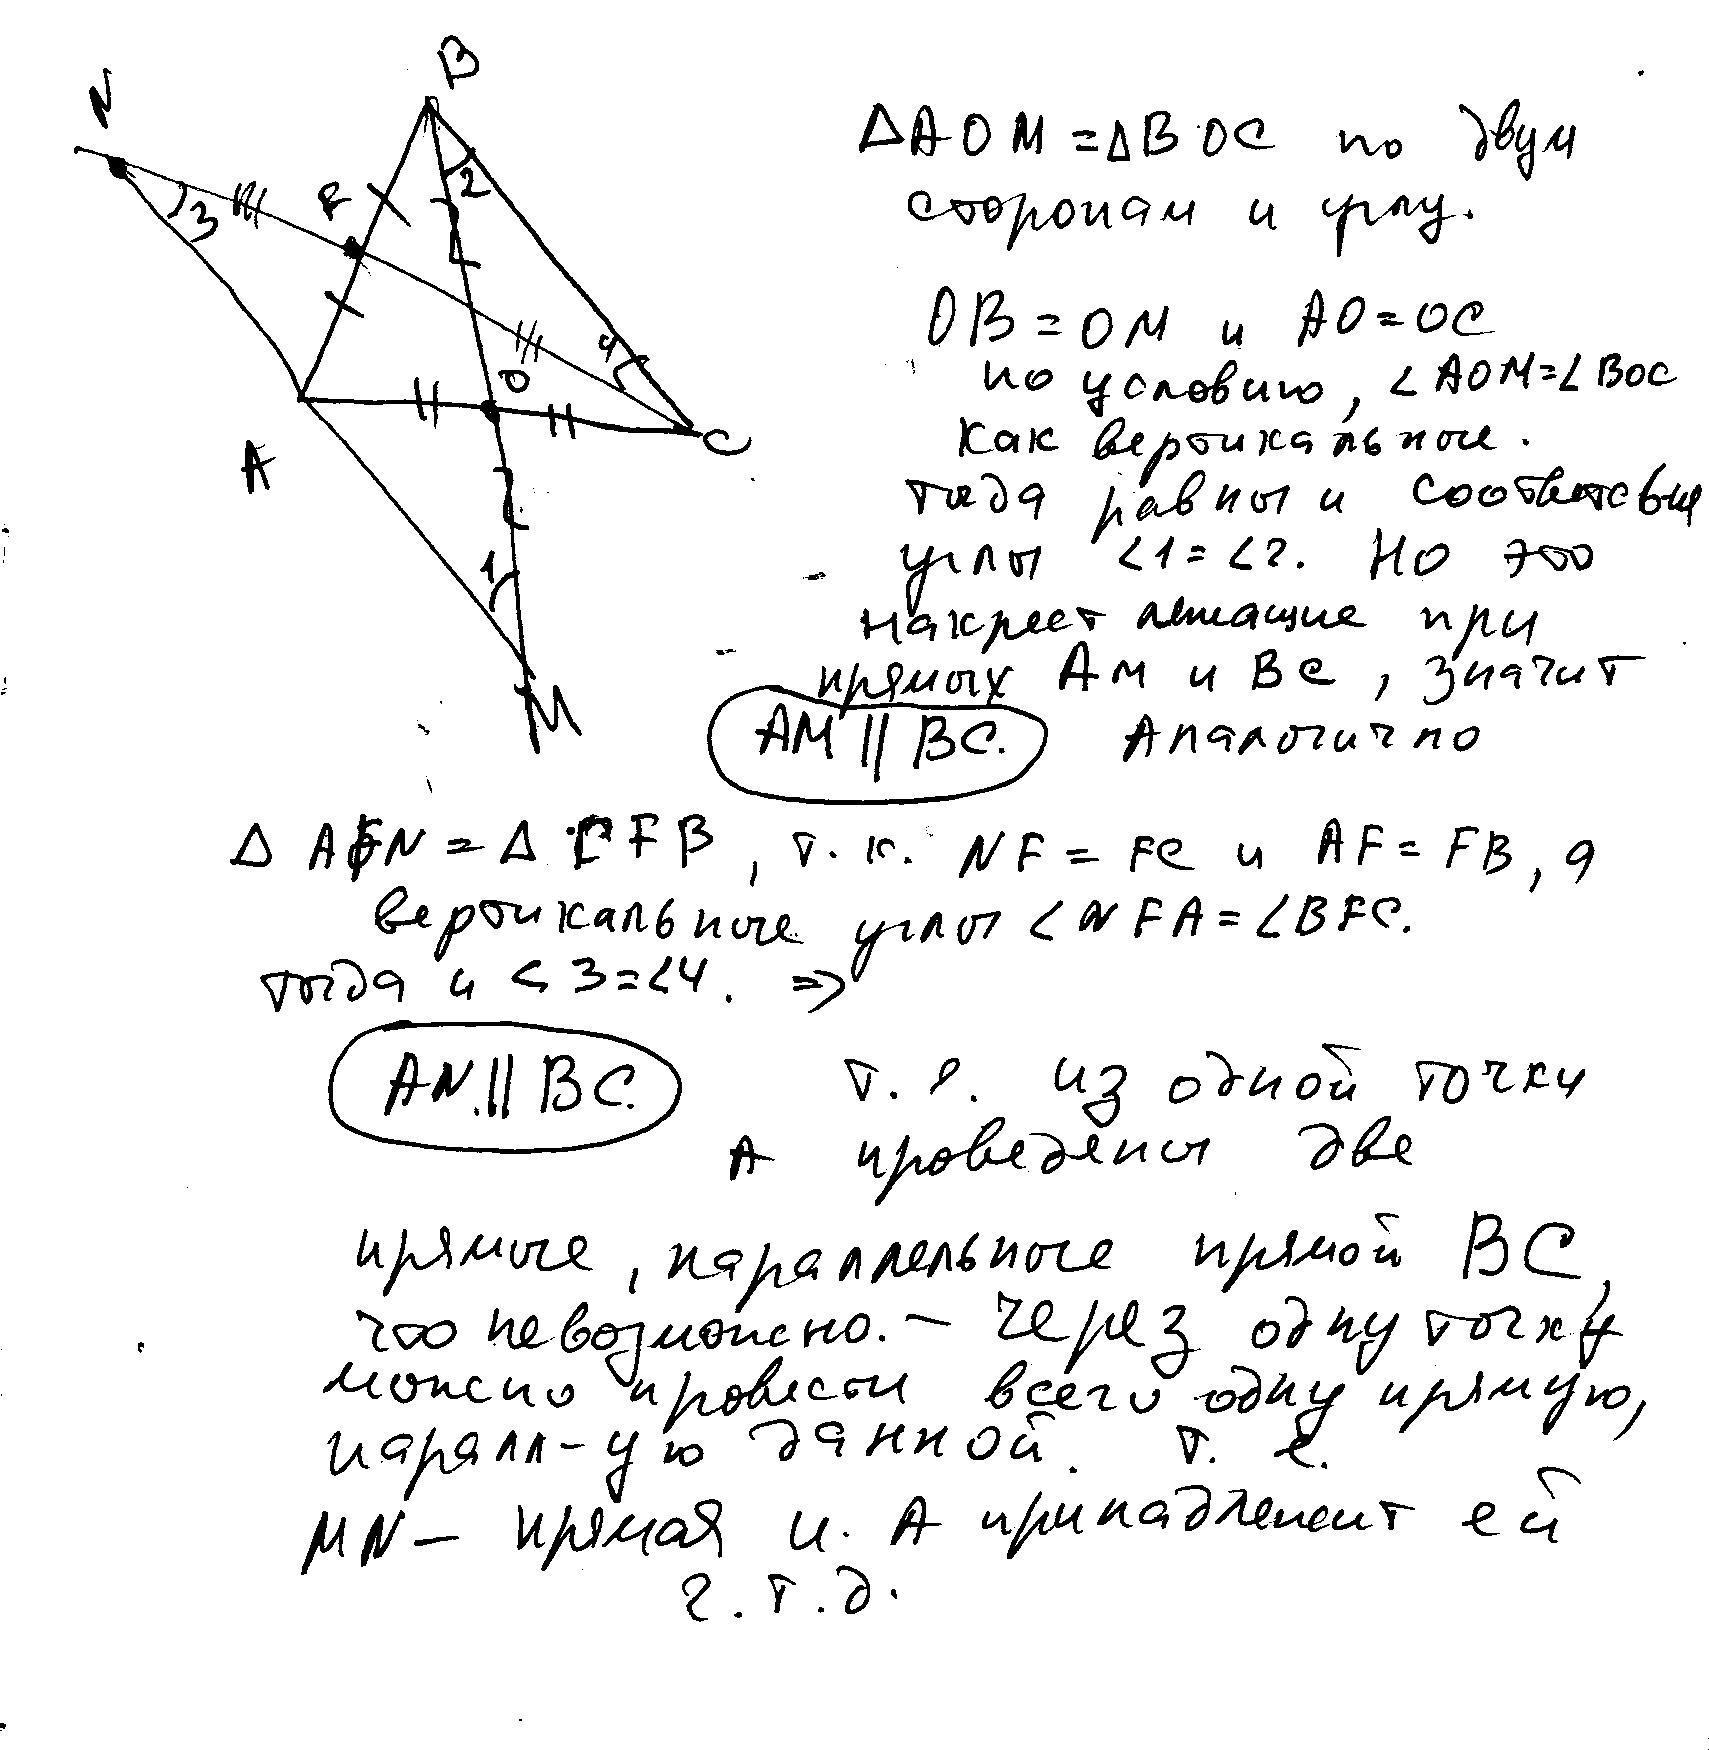 N
B
F
2
3
4
O
A
C
1
M
ΔAOM = ΔBOC по двум
сторонам и углу.
OB = OM и AO = OC
по условию, <AOM = <BOC
как вертикальные.
тогда равны и соответствен
углы <1 = <2. Но это
накрест лежащие при
прямых AM и BC, значит
AM || BC. Аналогично
Δ AFN = Δ CFB, т.к. NF = FC и AF = FB, а
вертикальные углы <NFA = <BFC.
тогда и <3 = <4. =>
AN || BC. т.е. из одной точки
A проведены две
прямые, параллельные прямой BC,
что невозможно. – Через одну точку
можно провести всего одну прямую,
паралл-ую данной. т.е.
MN – прямая и A принадлежит ей
ч.т.д.